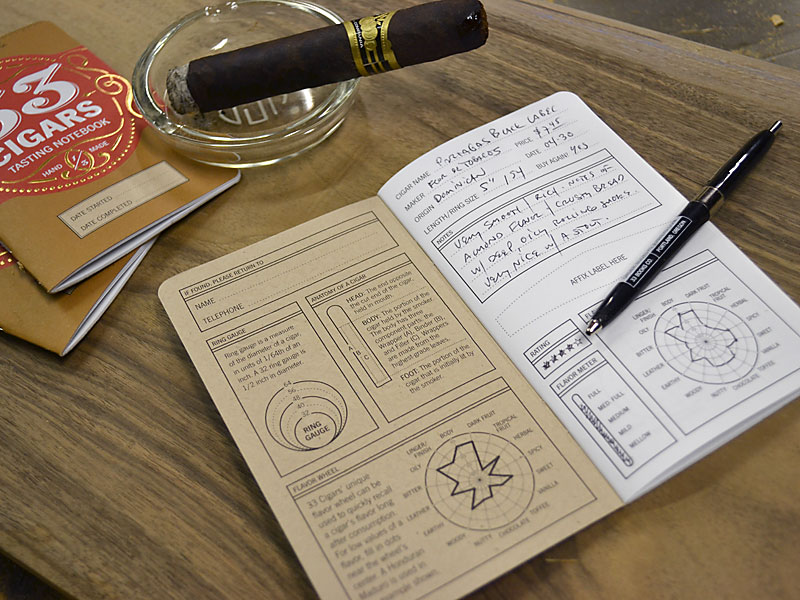 33
CIGARS
TASTING NOTEBOOK
HAND MADE
DATE STARTED
DATE COMPLETED
IF FOUND, PLEASE RETURN TO
NAME
TELEPHONE
RING GAUGE
Ring gauge is a measure
of the diameter of a cigar,
in units of 1/64th of an
inch. A 32 ring gauge is
1/2 inch in diameter.
64
56
48
40
32
RING
GAUGE
ANATOMY OF A CIGAR
A
B
C
HEAD: The end opposite
the cut end of the cigar,
held in mouth.
BODY: The portion of the
cigar held by the smoker.
The body has three
component parts, the
Wrapper (A), Binder (B),
and Filler (C). Wrappers
are made from the
highest grade leaves.
FOOT: The portion of the
cigar that is initially lit by
the smoker.
FLAVOR WHEEL
33 Cigars' unique
flavor wheel can be
used to quickly recall
a cigar's flavor long
after consumption.
For low values of a
flavor, fill in dots
near the wheel's
center. A Honduran
Maduro is used in
sample shown.
BODY
DARK FRUIT
TROPICAL
FRUIT
HERBAL
SPICY
SWEET
VANILLA
TOFFEE
CHOCOLATE
NUTTY
WOODY
EARTHY
LEATHER
BITTER
OILY
LINGER/
FINISH
CIGAR NAME PARTAGAS BLACK LABEL
MAKER FLOR DE TOBACOS PRICE $7.45
ORIGIN DOMINICAN DATE 04.30
LENGTH/RING SIZE 5" / 54 BUY AGAIN? YES
NOTES
VERY SMOOTH / RICH. NOTES OF
ALMOND FLAVOR / CRUSTY BREAD
W/ DEEP, OILY ROLLING SMOKE.
VERY NICE W/ A STOUT.
AFFIX LABEL HERE
33 BOOKS CO. PORTLAND, OREGON
RATING
FLAVOR METER
FULL
MED. FULL
MEDIUM
MILD
MELLOW
LINGER/
FINISH
BODY
DARK FRUIT
TROPICAL
FRUIT
HERBAL
SPICY
SWEET
VANILLA
TOFFEE
CHOCOLATE
NUTTY
WOODY
EARTHY
LEATHER
BITTER
OILY